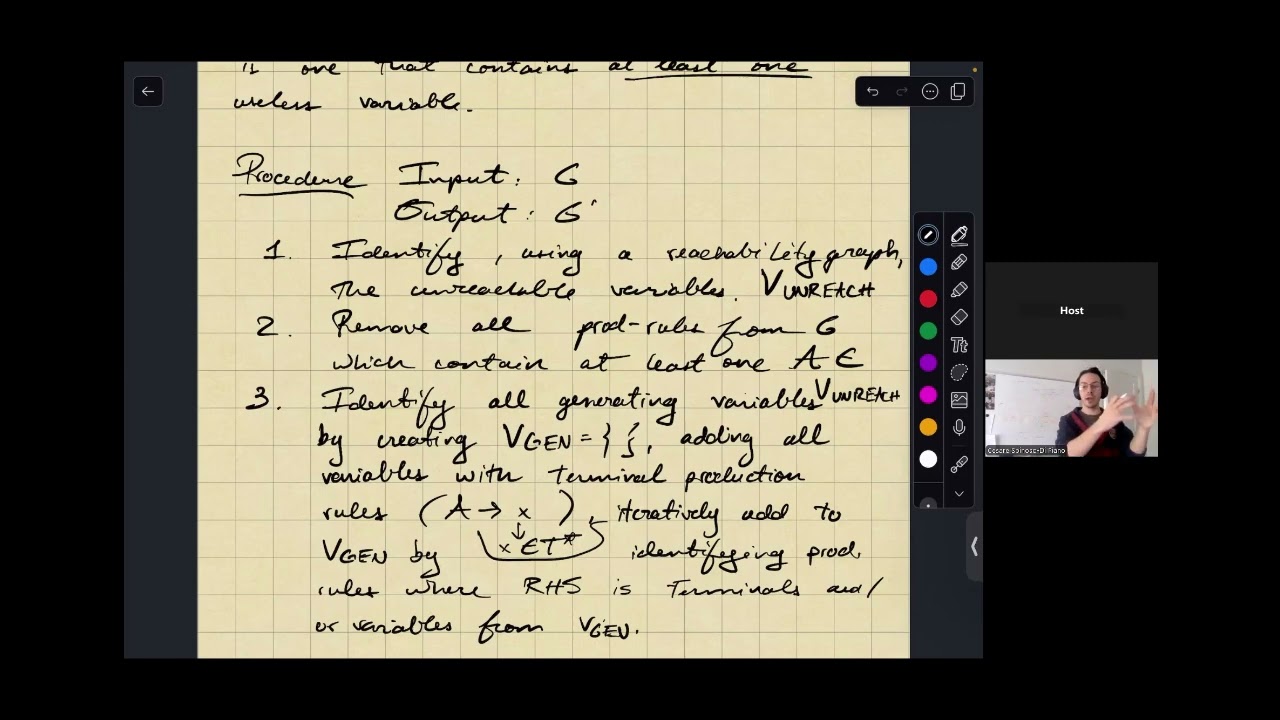 is one that contains at least one
useless variable.
Procedure Input: G
Output: G'
1. Identify, using a reachability graph,
the unreachable variables. VUNREACH
2. Remove all prod-rules from G
which contain at least one A ∈
VUNREACH
3. Identify all generating variables
by creating VGEN = { }, adding all
variables with terminal production
rules (A → x), iteratively add to
x ∈ T*
VGEN by identifying prod.
rules where RHS is terminals and/
or variables from VGEN.
Tt
Host
Cesare Spinoso-Di Piano